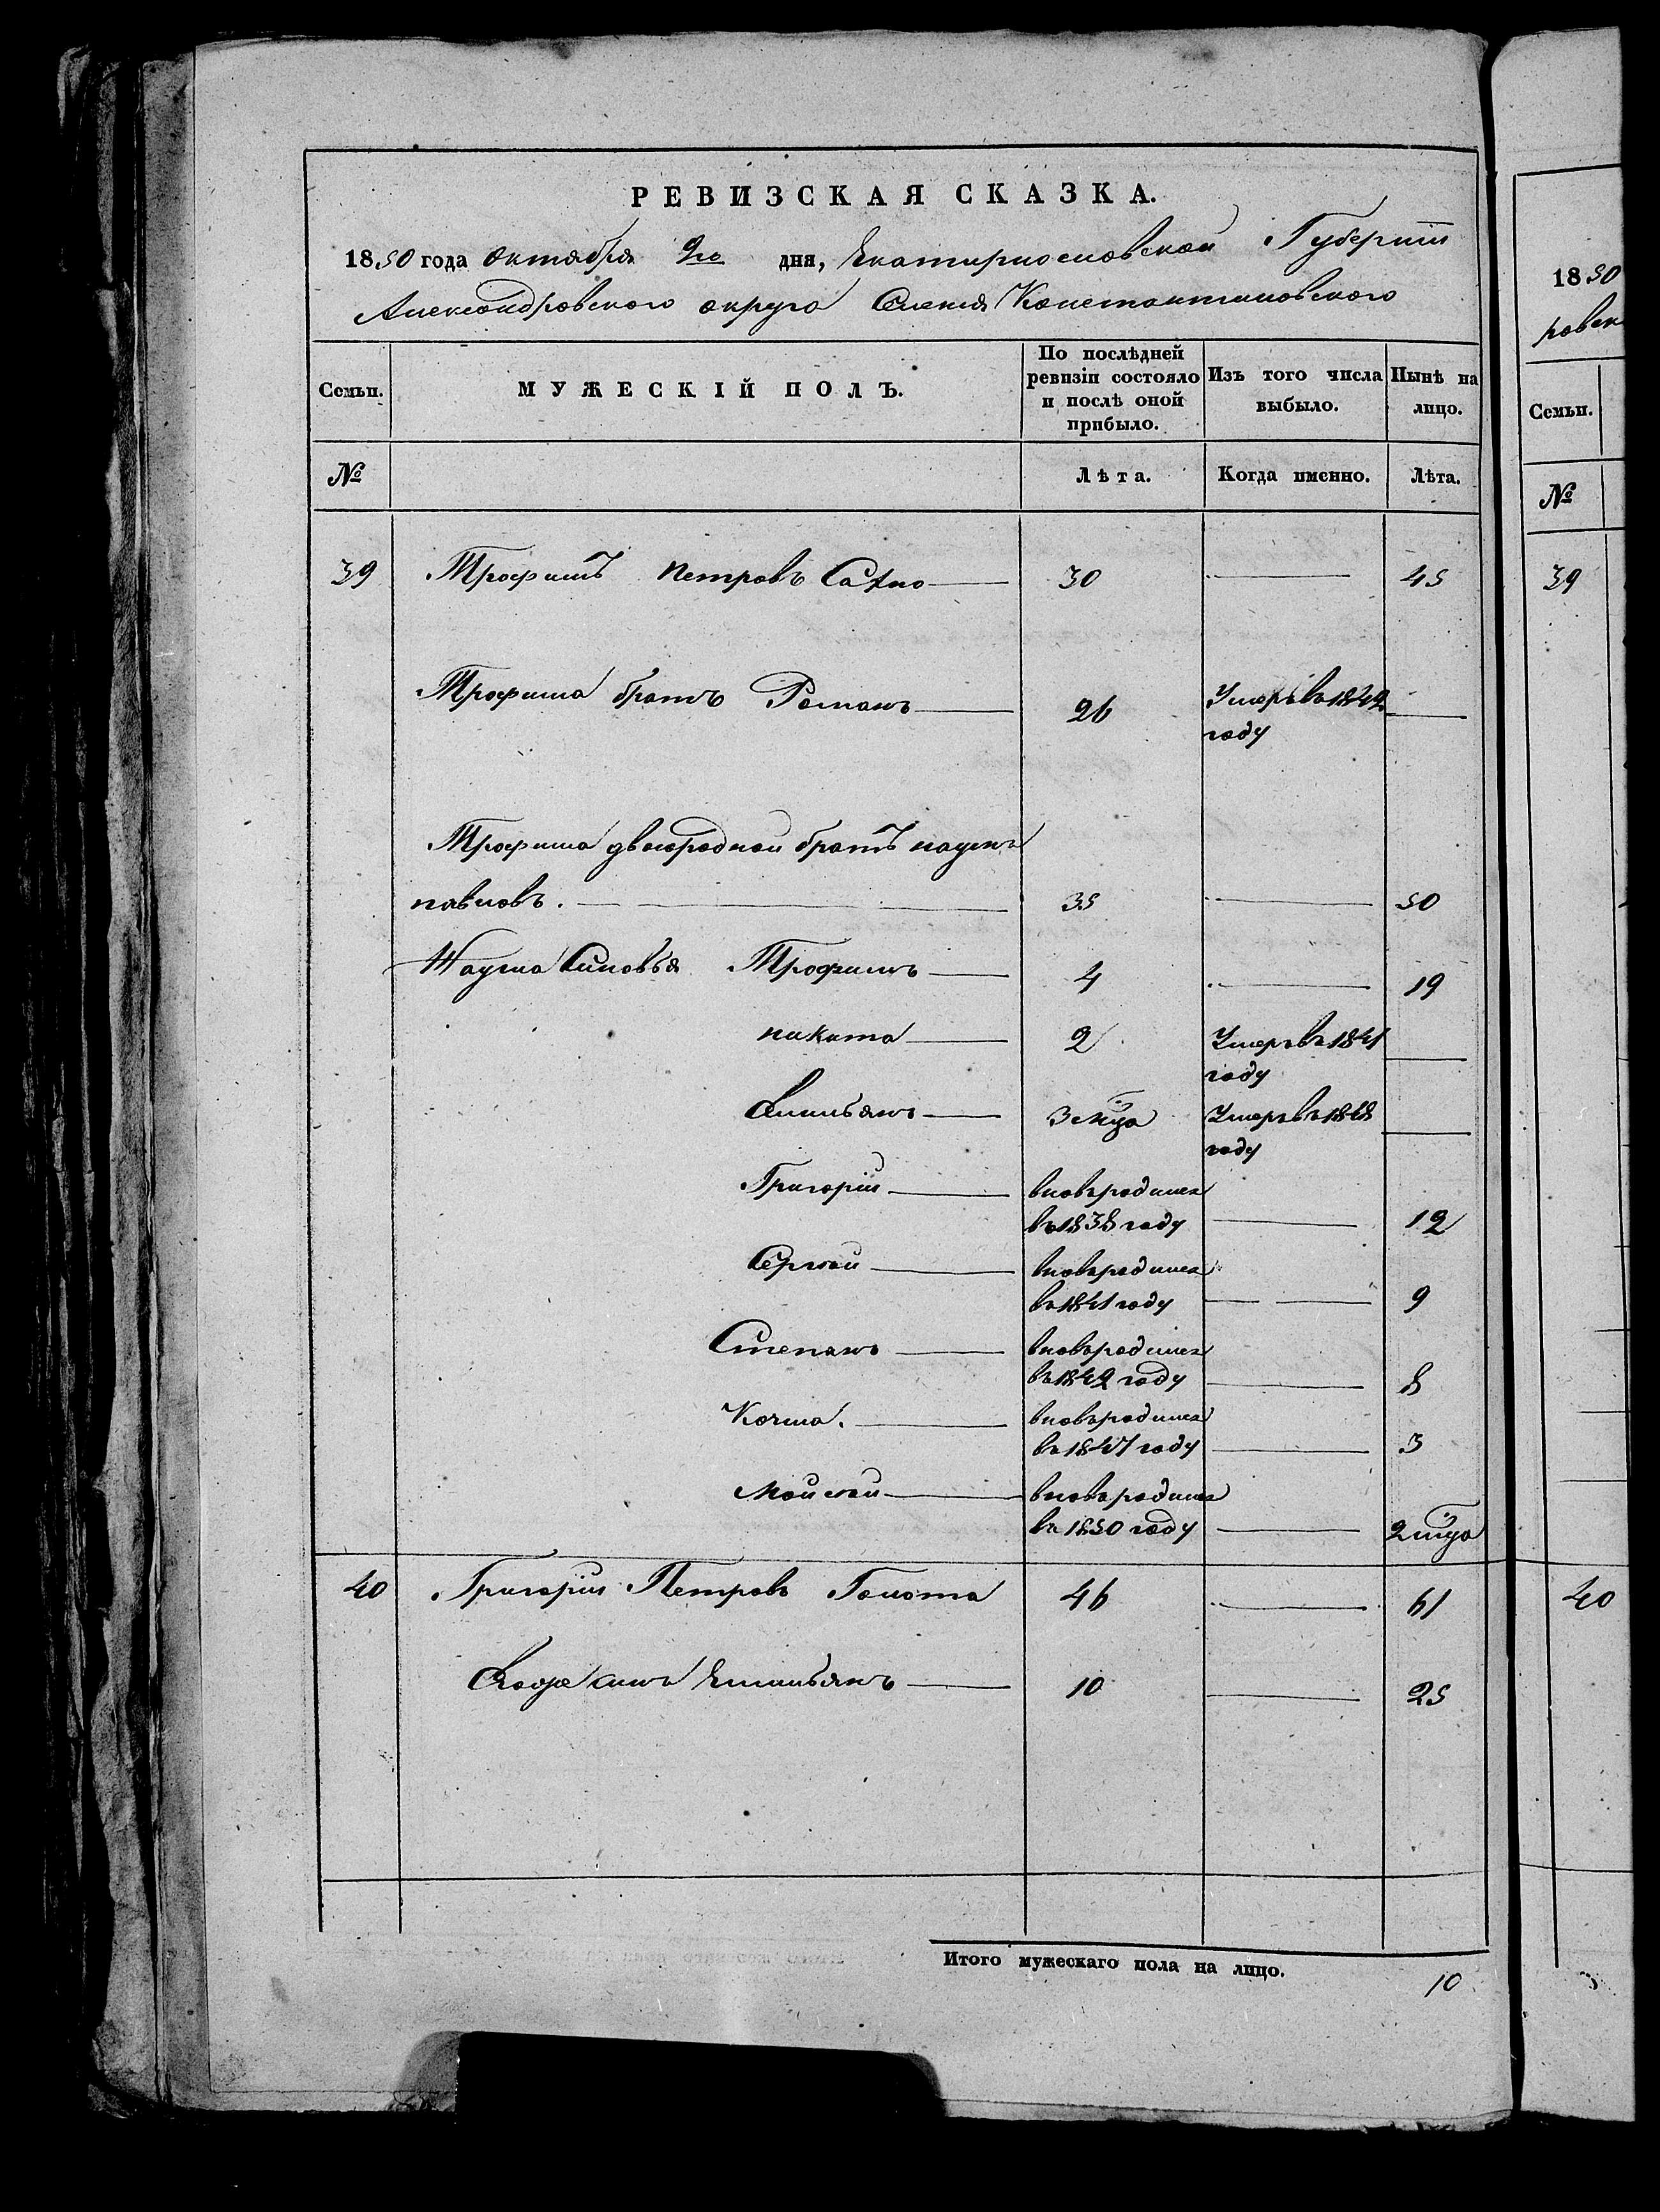 РЕВИЗСКАЯ СКАЗКА.
1850 года октября 9го дня, Екатиринославской Губерніи
Александровского округа Селенія Константиновского
Семьи.
МУЖЕСКІЙ ПОЛЪ.
По послѣдней ревизіи состояло и послѣ оной прибыло.
Изъ того числа выбыло.
Нынѣ на лицо.
№
Лѣта.
Когда именно.
Лѣта.
39 Трофимъ Петровъ Сахно 30 45
Трофима братъ Романъ 26 Умеръ въ 1842
году
Трофима двоюродной братъ наумъ
павловъ. 35 50
Наума Синовья Трофимъ 4 19
никита 2 Умеръ въ 1841
году
Емильянъ 3 мца Умеръ въ 1848
году
Григорій вновьродился
въ 1838 году 12
Сергей вновьродился
въ 1841 году 9
Степанъ вновьродился
въ 1842 году 8
Козма. вновьродился
въ 1847 году 3
Мойсей вновьродился
въ 1850 году 2 мца
40 Григорій Петровъ Голота 46 61
синъ Емильянъ 10 25
Итого мужескаго пола на лицо.
10
1850
ровск
Семьи.
№
39
40